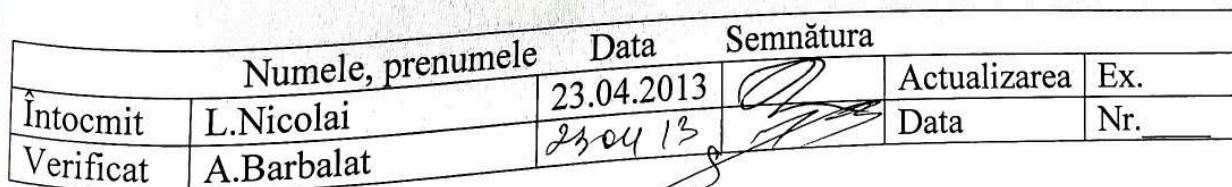 Numele, prenumele Data Semnătura
Întocmit L.Nicolai 23.04.2013 Actualizarea Ex.
Verificat A.Barbalat 23 04 13 Data Nr.____